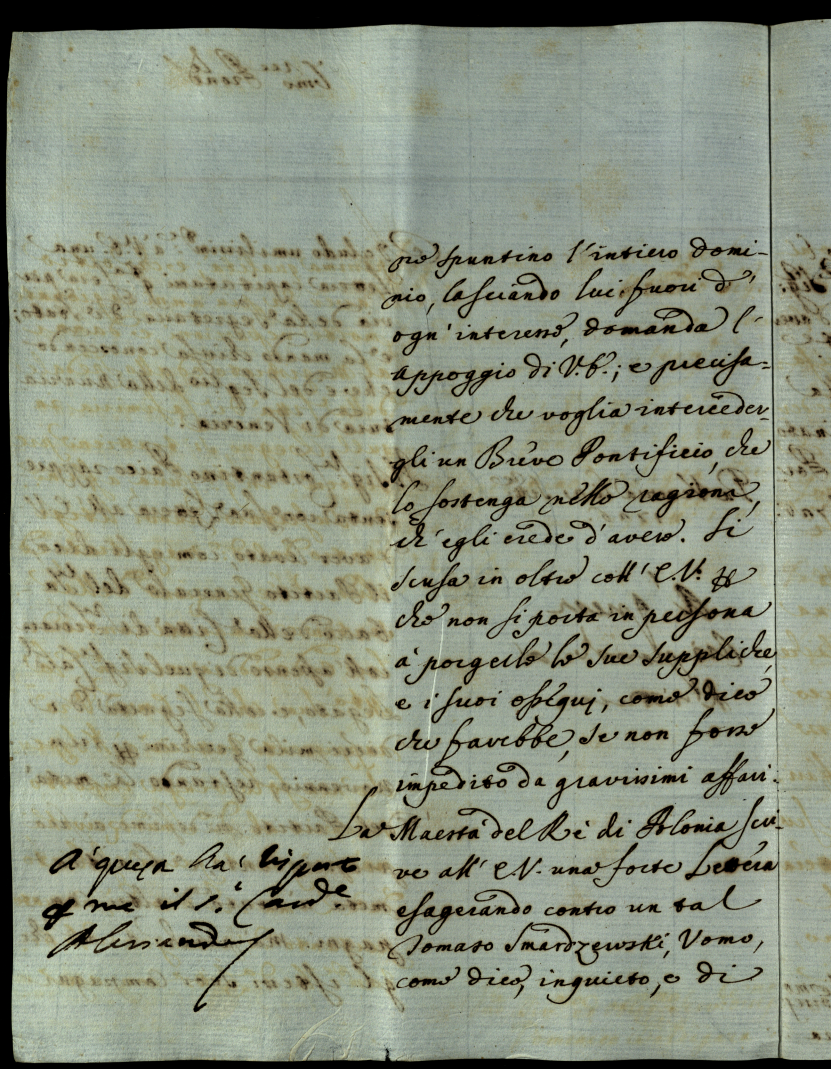 spuntino l'intiero domi-
nio, lasciando lui fuori d'
ogn'interesse, domanda l'
appoggio di V.E.; e precisa=
mente che voglia interceder-
gli un Breve Pontificio, che
lo sostenga nelle ragioni,
ch'egli crede d'avere. Si
scusa in oltre coll'E.V. ꝑ
che non si porta in persona
à porgerle le sue suppliche,
e i suoi ossequj, come dice
che farebbe, se non fosse
impedito da gravissimi affari.
La Maestà del Rè di Polonia scri-
ve all'E.V. una forte Lettera
esagerando contro un tal
Tomaso Smardzewski, Uomo,
come dice, inquieto, e di
A' questa hà
ꝑ me il S.r Card.e
Alessandro